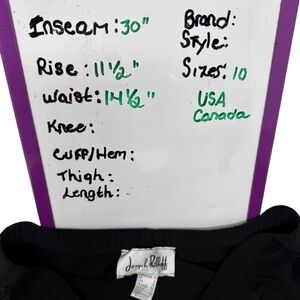 Inseam: 30"
Rise: 11 1/2"
Waist: 14 1/2"
Knee:
Cuff/Hem:
Thigh:
Length:
Brand:
Style:
Sizes: 10
USA
Canada
Joseph Ribkoff